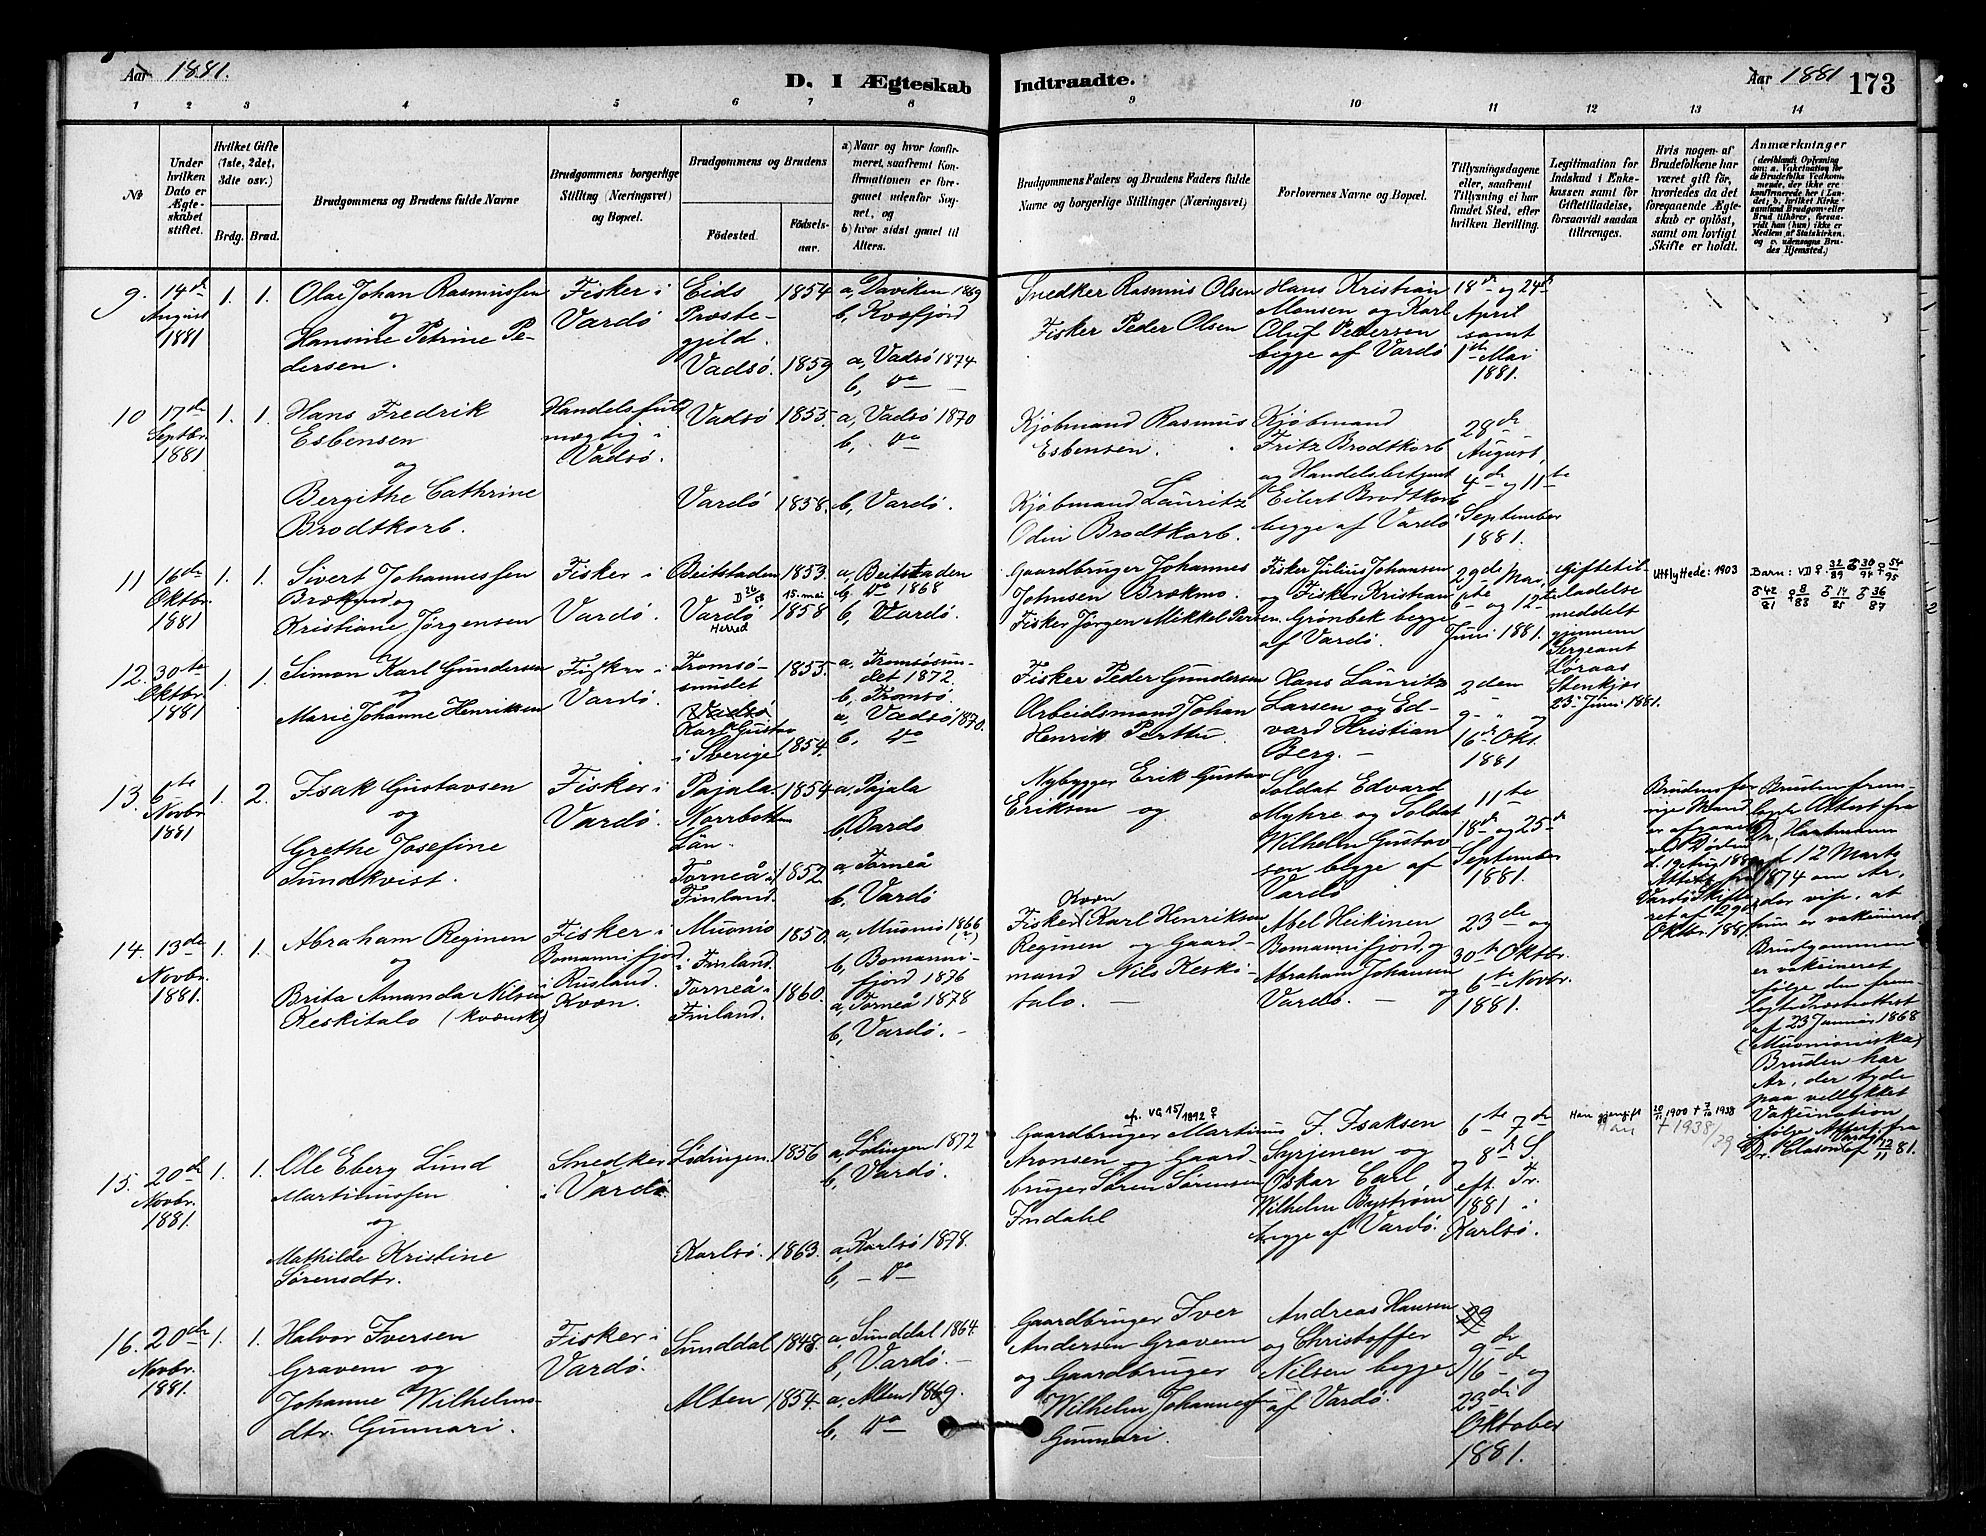 Aar 1881.
D. I Ægteskab
Indtraadte.
Aar 1881 173
1 2 3 4 5 6 7 8 9 10 11 12 13 14
№
Under hvilken Dato er Ægteskabet stiftet.
Hvilket Gifte (1ste, 2det, 3dte osv.)
Brdg. Brud.
Brudgommens og Brudens fulde Navne
Brudgommens borgerlige Stilling (Næringsvei) og Bopæl.
Brudgommens og Brudens
Fødested. Fødselsaar.
a) Naar og hvor konfirmeret, saafremt Konfirmationen er foregaaet udenfor Sognet, og
b) hvor sidst gaaet til Alters.
Brudgommens Faders og Brudens Faders fulde Navne og borgerlige Stillinger (Næringsvei)
Forlovernes Navne og Bopæl.
Tillysningsdagene eller, saafremt Tillysning ei har fundet Sted, efter hvilken Bevilling.
Legitimation for Indskud i Enkekassen samt for Giftetilladelse, forsaavidt saadan tiltrænges.
Hvis nogen af Brudefolkene har været gift før, hvorledes da det foregaaende Ægteskab er opløst, samt om lovligt Skifte er holdt.
Anmærkninger
9. 14de August 1881
1. 1.
Olai Johan Rasmussen
og
Hansine Petrine Pedersen.
Fisker i
Vardö
Eids
Præstegjeld. 1854
Vadsö. 1859
a, Daviken 1869
b, Kvæfjord
a, Vadsö 1874
b, do
Snedker Rasmus Olsen
Fisker Peder Olsen
Hans Kristian
Monsen og Karl
Oluf Pedersen
begge af Vardö
18de og 24de
April
samt
1ste Mai
1881.
10 17de Septbr. 1881
1. 1.
Hans Fredrik
Esbensen
og
Bergithe Cathrine
Brodtkorb.
Handelsfuldmægtig i
Vadsö.
Vadsö 1855
Vardö 1858.
a, Vadsö 1870
b, do
b, Vardö.
Kjöbmand Rasmus
Esbensen.
Kjöbmand Lauritz
Odin Brodtkorb.
Kjöbmand
Fritz Brodtkorb
og Handelsbetjent
Eilert Brodtkorb
begge af Vardö
28de
August,
4de og 11te
September
1881.
11 16de Oktbr. 1881
1. 1.
Sivert Johannessen
Brækmo og
Kristiane Jörgensen
Fisker i
Vardö
Beitstaden 1853.
Vardö Herred 15. mai 1858
a, Beitstaden
1868
b, Vardö.
Gaardbruger Johannes
Johnsen Brækmo.
Fisker Jörgen Mikkel Persen.
Fisker Julius Johansen
og Fisker Kristian
Grönbek begge
af Vardö.
29de Mai,
6te og 12te
Juni 1881.
Giftetilladelse
meddelt
gjennem
Sergeant
Løraas
Stenkjær
23. Juni 1881.
Utflyttede: 1903
Barn: VD ♀ 32/89 ♂ 30/94 ♀ 54/95
♂ 42/81 ♀ 8/83 ♂ 14/85 ♂ 36/87
12. 30te Oktbr. 1881
1. 1.
Simon Karl Gundersen
og
Marie Johanne Henriksen
Fisker i
Vardö.
Tromsösundet 1855.
Vadsö
Karl Gustav
i Sverige 1854.
a, Tromsösundet 1872.
b, Tromsö.
a, Vadsö 1870.
b, do
Fisker Peder Gundersen
Arbeidsmand Johan
Henrik Perttu.
Hans Lauritz
Larsen og Edvard Kristian
Berg.
2den
9- og
16de Okt.
1881
13. 6te Novbr. 1881
1. 2.
Isak Gustavsen
og
Grethe Josefine
Sundkvist.
Fisker i
Vardö.
Pajala 1854
Norrbotten
Län.
Torneå i 1852.
Finland.
a, Pajala
b, Vardö
a, Torneå
b, Vardö
Nybygger Erik Gustav
Eriksen og
Soldat Edvard
Myhre og Soldat
Wilhelm Gustavsen begge af
Vardö
11te
18de og 25de
September
1881.
Brudens forrige Mand
er afgaaet
ved Döden
d. 19 Aug 1880
Attest fra
Vardö Skifteret af 29de
Oktbr. 1881.
Bruden fremlagte Attest fra
Dr. Hartmann
af 12 Marts
1874 om Ar,
der vise, at
hun er vakcineret.
14. 13de Novbr. 1881.
1. 1.
Abraham Reginen
og
Brita Amanda Nilsen
Keskitalo (kvænsk)
Fisker i
Bomannifjord
i Rusland.
Kvæn.
Muonio 1850.
i Finland.
Torneå i 1860.
Finland.
a, Muonio 1866 (?)
b, Bomannifjord 1876
a, Torneå 1878
b, Vardö.
Kvæn
Fisker (Karl Henriksen
Reginen og Gaardmand Nils Keskitalo.
Abel Heikinen
Bomannifjord, og
Abraham Johansen
Vardö.
23de og
30te Oktbr.
og 6te Novbr.
1881.
Brudgommen
er vakcineret
ifölge den fremlagte Præsteattest
af 23 Januar 1868
(Muonioniska)
Bruden har
Ar, der tyde
paa vellykket
Vakcination
ifölge Attest fra
Dr. Clason Vardö af 12/11 81.
15. 20de Novbr. 1881.
1. 1.
Ole Eberg Lund
Martinussen
og
Mathilde Kristine
Sörensdtr.
Snedker
i Vardö
Lödingen. 1856
Karlsö. 1863.
a, Lödingen 1872
b, Vardö.
a, Karlsö 1878.
b, do
VG 15/1892 ♀
Gaardbruger Martinus
Aronsen og Gaardbruger Sören Sörensen
Indahl
F Isaksen
Syrjenen og
Oskar Carl
Wilhelm Byström
begge af Vardö.
6te 7de
og 8de S.
eft. Tr.
1881
Karlsö.
Han gjengift
20/11 1900 † 7/10 1938
Han † 1938/39
16. 20de Novbr. 1881.
1. 1.
Halvor Iversen
Gravem og
Johanne Wilhelmsdtr. Gunnari.
Fisker i
Vardö.
Sunddal 1848.
Alten 1854.
a, Sunddal 1864.
b, Vardö.
a, Alten 1869.
b, do
Gaardbruger Iver
Andersen Gravem
og Gaardbruger
Wilhelm Johannessen
Gunnari.
Andreas Hansen
og Christoffer
Nilsen begge
af Vardö.
9de
16de og
23de
Oktober
1881.